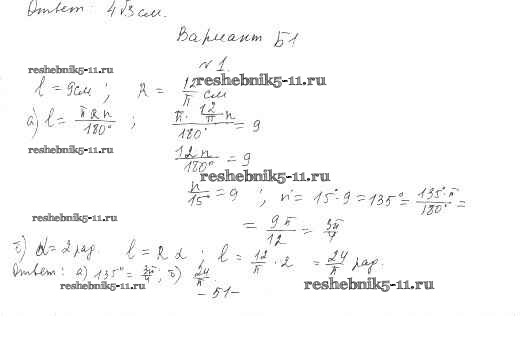 Ответ: 4√3 см.
Вариант Б1
№1.
reshebnik5-11.ru
l = 9см; R = 12/π см
reshebnik5-11.ru
а) l = πRn/180°; π·12/π n/180° = 9
reshebnik5-11.ru
12n/180° = 9
reshebnik5-11.ru
n/15° = 9; n = 15°·9 = 135° = 135°·π/180° =
reshebnik5-11.ru
= 9π/12 = 3π/4
б) α = 2 рад. l = Rα; l = 12/π · 2 = 24/π рад.
Ответ: а) 135° = 3π/4; б) 24/π
reshebnik5-11.ru
-51-
reshebnik5-11.ru